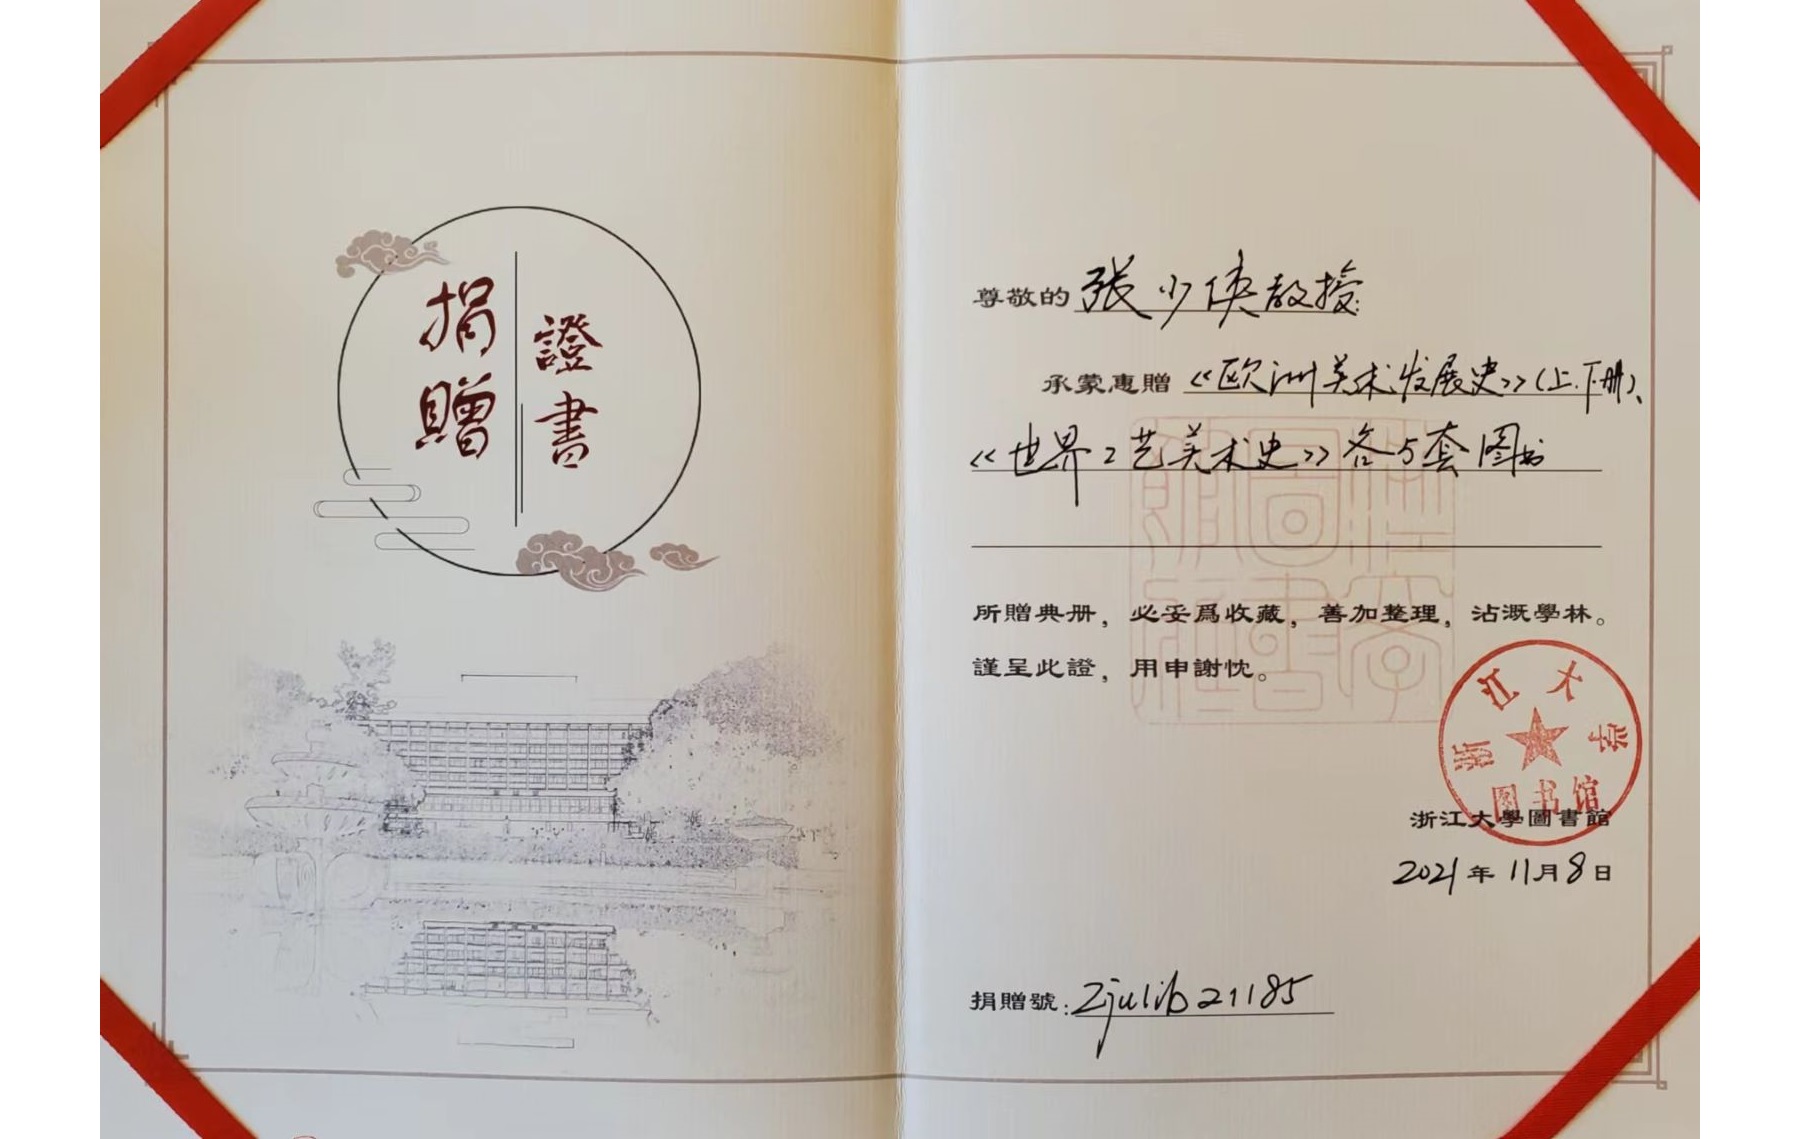 捐贈
證書
尊敬的 张少侠教授:
承蒙惠贈 《欧洲美术发展史》(上.下册)、
《世界工艺美术史》各5套图书
所贈典册，必妥爲收藏，善加整理，沾溉學林。
謹呈此證，用申謝忱。
浙江大学
图书馆
浙江大學圖書館
2021年11月8日
捐贈號:Zjulib21185